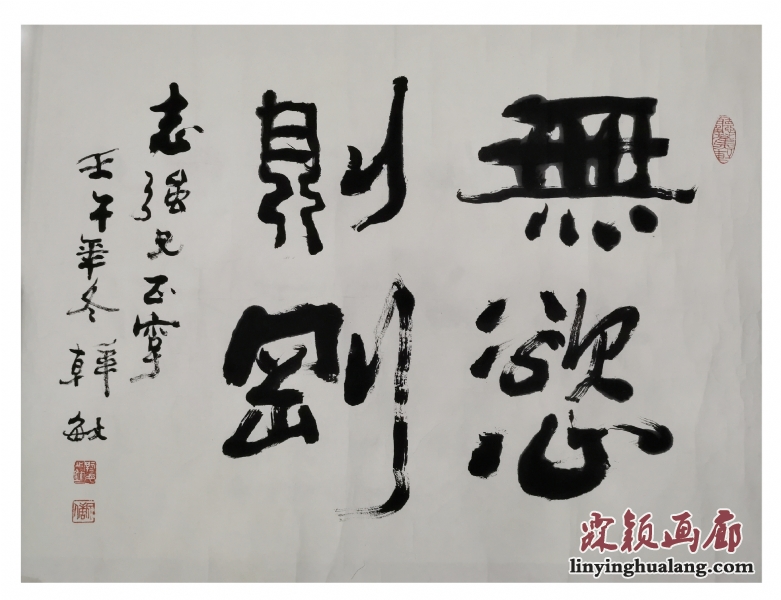 無慾
則剛
志強兄正字
壬午年冬韓敏
霖颖画廊
linyinghualang.com